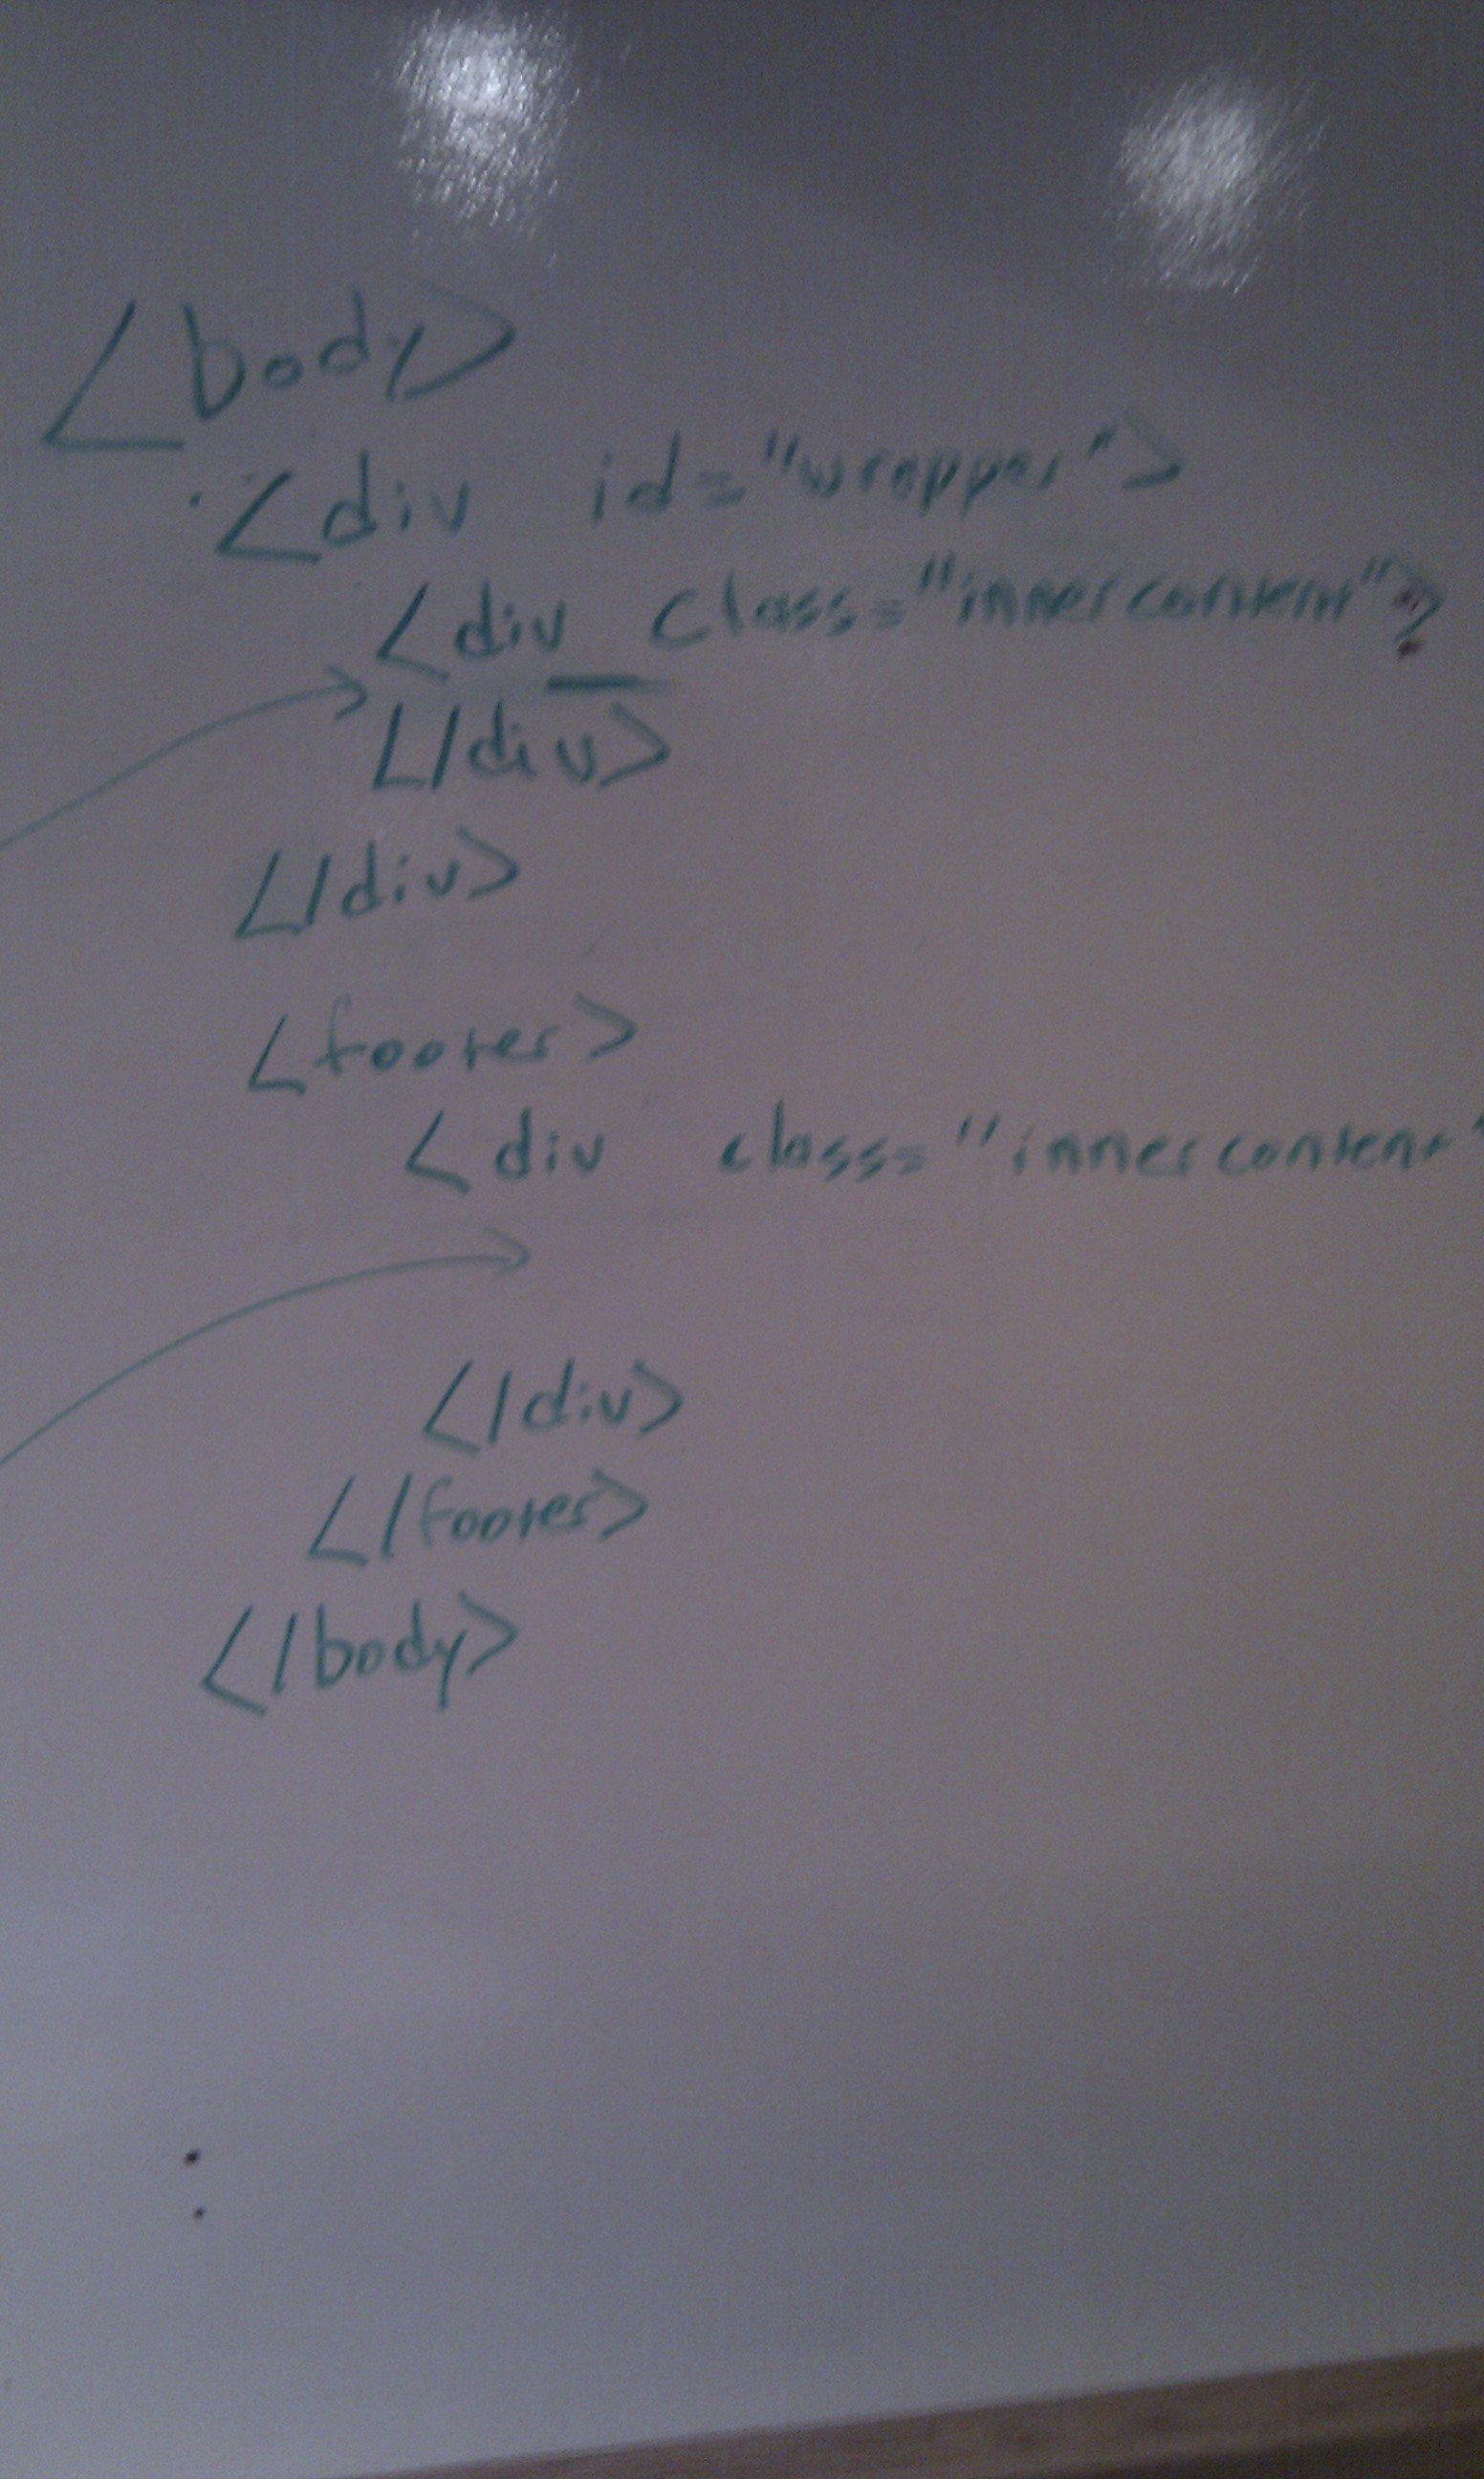 <body>
<div id="wrapper">
<div class="innercontent">
</div>
</div>
<footer>
<div class="innercontent"
</div>
</footer>
</body>